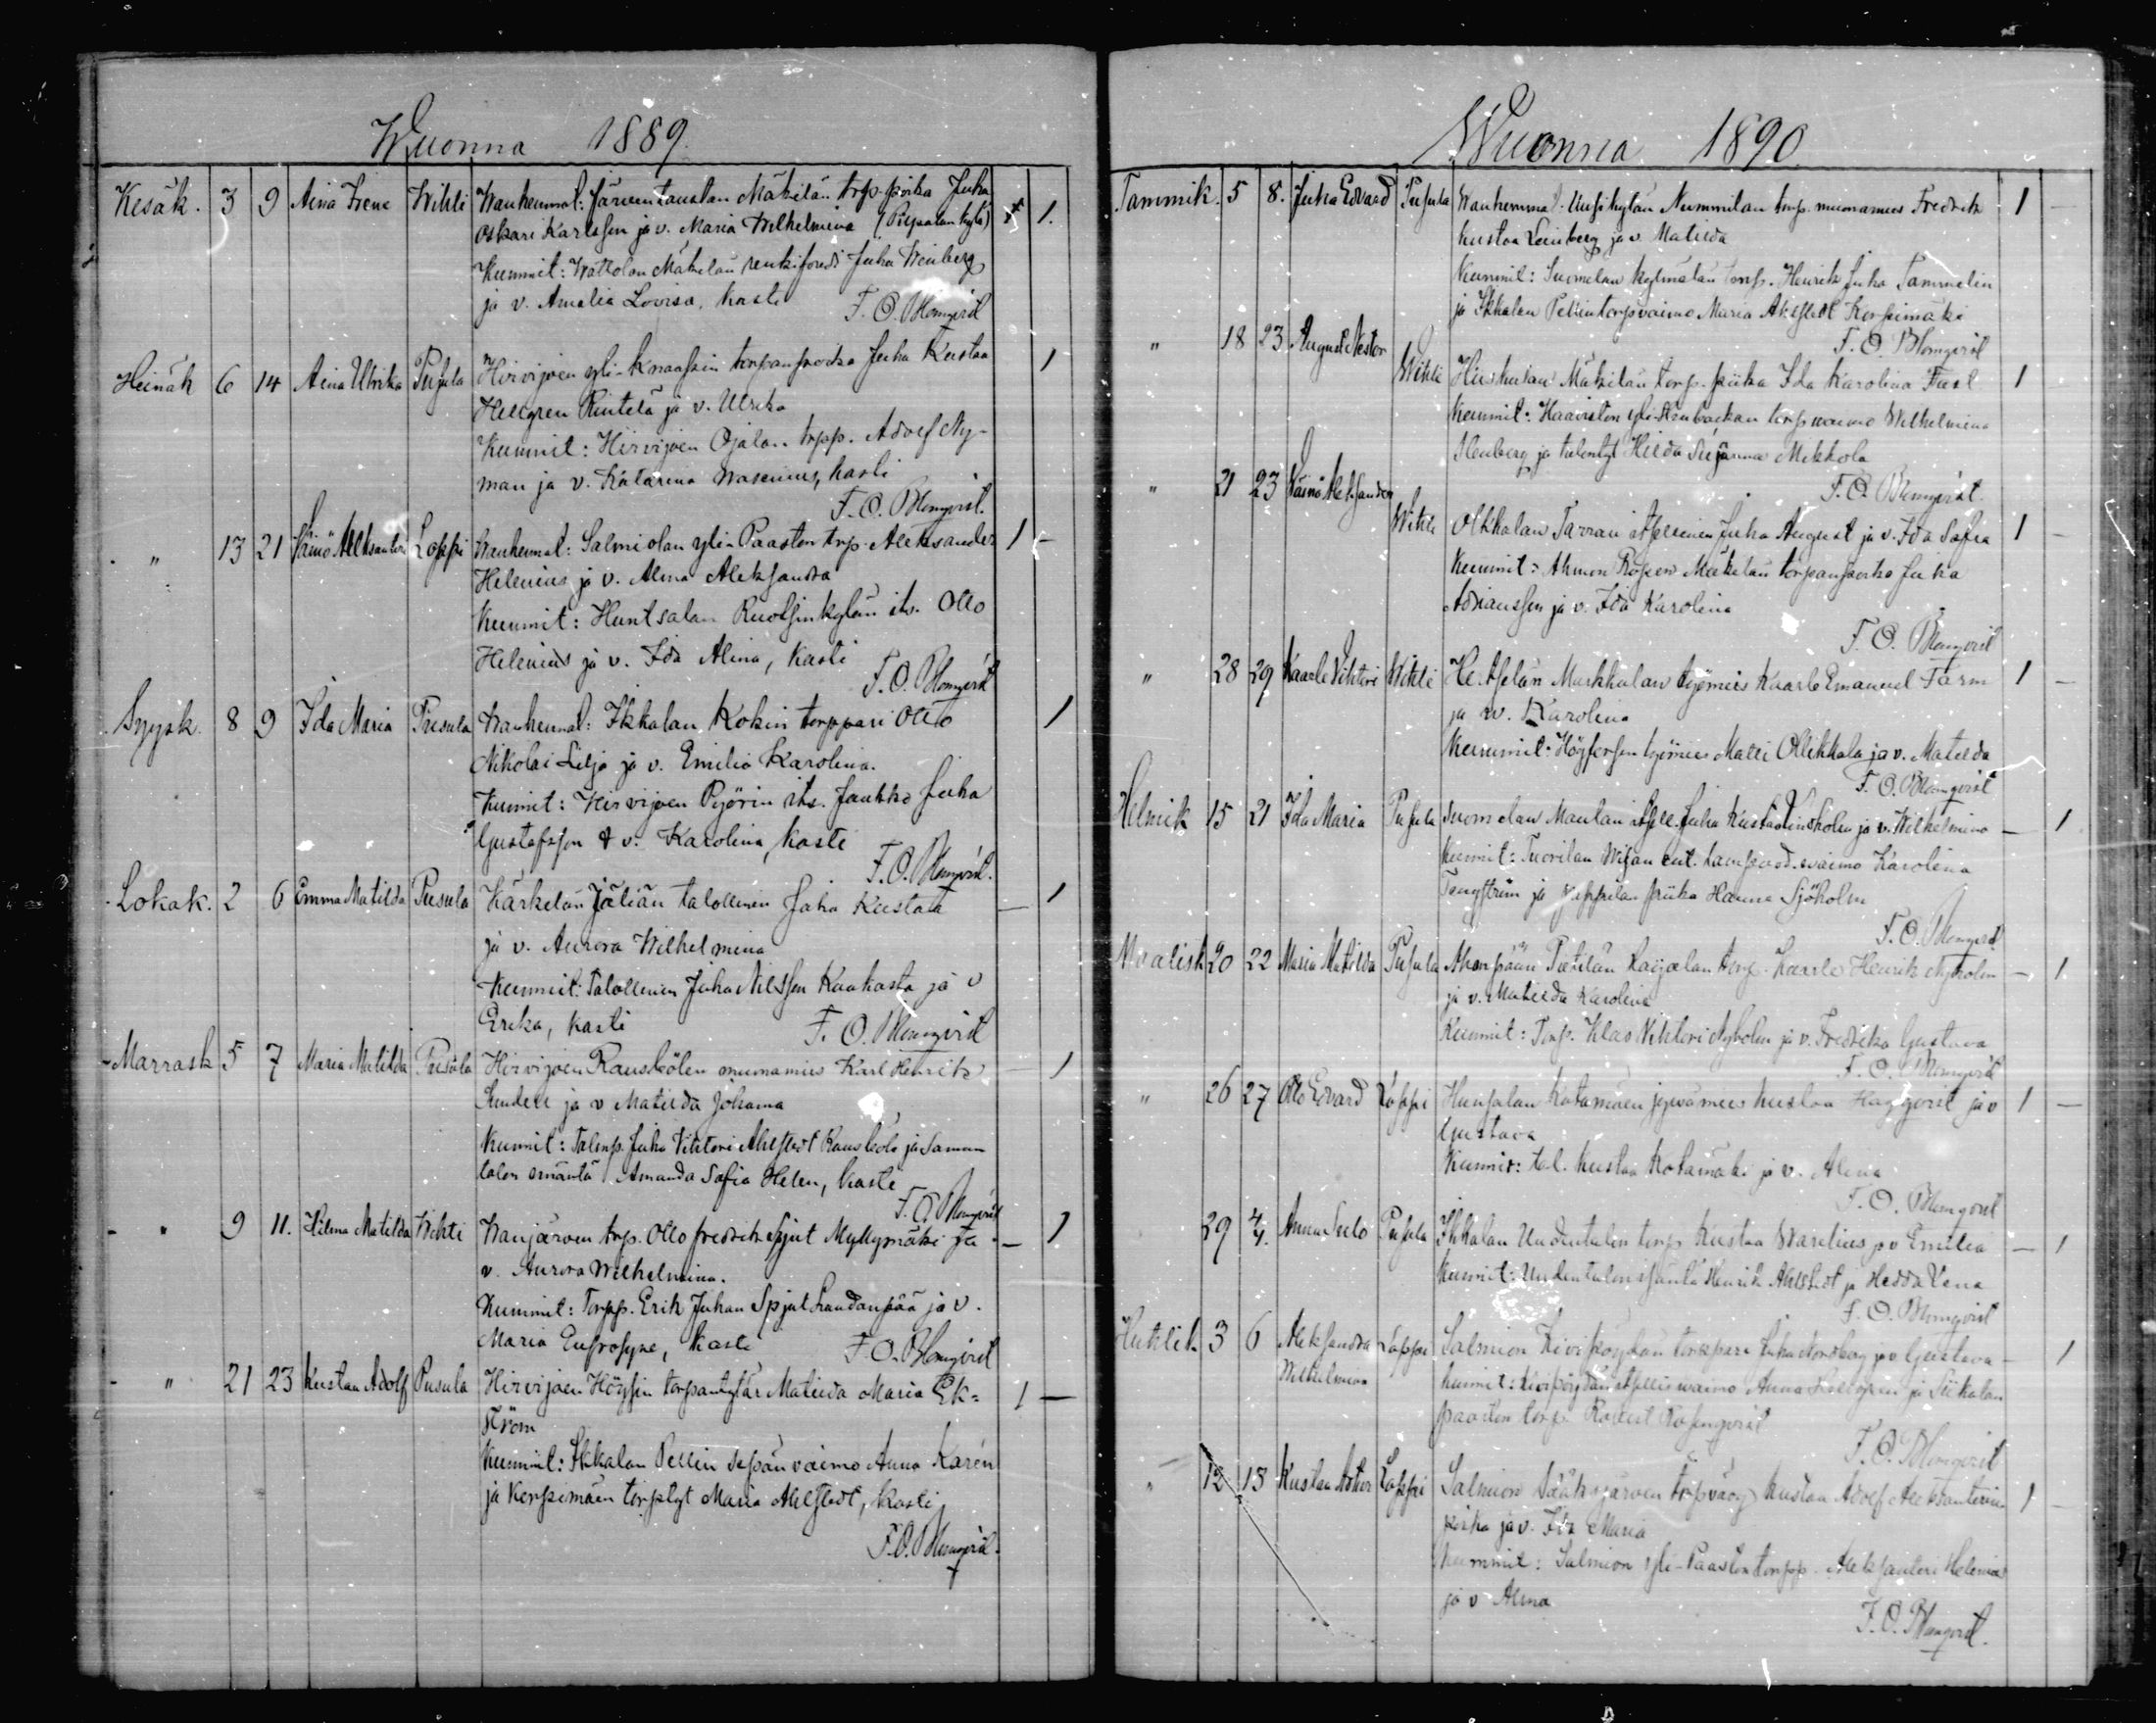 Wuonna 1889.
Kesäk. 3 9 Aina Irene Wihti Wanhemmat: Järventaustan Mäkilän torp. poika Juha 1.
Oskari Karlsson ja v. Maria Wilhelmina
Kummit: Wattolan Mäkelän Juha Weinberg
ja v. Amalia Lovisa, kasti
F. O. Blomqvist
Heinäk 6 14 Aina Ulrika Pusula Hirvijoen yli-Knaapin torpanpoika Juha Kustaa 1
Hellgren Rintelä ja v. Ulrika
Kummit: Hirvijoen Ojalan torpp. Adolf Ny-
man ja v. Katarina Wasenius, kasti
F. O. Blomqvist.
" 13 21 Väinö Aleksanteri Loppi Wanhemmat: Salmiolan yli-Paaston trp. Aleksander 1 -
Helenius ja v. Alma Aleksandra
Kummit: Huntsalan its. Otto
Helenius ja v. Ida Alina, kasti
F. O. Blomqvist
Syysk. 8 9 Ida Maria Pusula Wanhemmat: Ikkalan Kokin torppari Otto 1
Nikolai Lilja ja v. Emilia Karolina.
Kummit: Hirvijoen Pyörin its. Juha
Gustafsson & v. Karolina, kasti
F. O. Blomqvist.
Lokak. 2 6 Emma Matilda Pusula Kärkelän Jälïän talollinen Juha Kustaa — 1
ja v. Aurora Wilhelmina
Kummit: Talollinen Juha Nilsson Kaukasta ja v
Erika, kasti
F. O. Blomqvist
Marrask 5 7 Maria Matilda Pusula Hirvijoen muonamies Karl Henrik — 1
Sundell ja v Matilda Johanna
Kummit: Juha Vihtori Ahlstedt ja saman
talon emäntä Amanda Sofia Helen, kasti
F. O. Blomqvist
" 9 11. Hilma Matilda Wihti Wanjärven trp. Otto Fredrik Spjut Myllymäki ja — 1
v. Aurora Wilhelmina.
Kummit: Torpp. Erik Juhan Spjut ja v.
Maria Eufrosyne, kasti
F. O. Blomqvist
" 21 23 Kustaa Adolf Pusula Hirvijoen Höyssin torpantytär Matilda Maria Ek- 1 —
ström
Kummit: Ikkalan Pellin sepän vaimo Anna Karén
ja Korpimäen torptyt Maria Ahlstedt, kasti
F. O. Blomqvist.
Wuonna 1890
Tammik. 5 8. Juha Edvard Pusula Wanhemmat. Uusikylän Nummilan torp. muonamies Fredrik 1
Kustaa Leinberg ja v. Matilda
Kummit: Suomelan torp. Henrik Juha Tammelin
ja Ikkalan Pellin torp vaimo Maria Ahlstedt Korpimäki
F. O. Blomqvist
" 18 23 August Nestor Wihti Hiiskulan Mäkilän torp. piika Ida Karolina 1
Kummit: Haaviston torp vaimo Wilhelmina
Stenberg ja Hilda Susanna Mikkola
F. O. Blomqvist.
" 21 23 Väinö Aleksander Wihti Olkkalan Juha August ja v. Ida Sofia 1 -
Kummit: Ahmon Mäkelän torpanpoika Juha
Adriansson ja v. Ida Karolina
F. O. Blomqvist
" 28 29 Kaarle Vihtori Wihti Markkulan työmies Kaarle Emanuel Farm 1 -
ja v. Karolina
Kummit: työmies Matti Ollikkala ja v. Matilda
F. O. Blomqvist
Helmik 15 21 Ida Maria Pusula Suomelan Juha Kustaa ja v. Wilhelmina — 1
Kummit: vaimo Karolina
ja piika Hanna Sjöholm
F. O. Blomqvist
Maalisk 20 22 Maria Matilda Pusula torp. Kaarle Henrik Nyholm — 1
ja v. Matilda Karolina
Kummit: Torp. Klas Vihtori Nyholm ja v. Fredrika Gustava
F. O. Blomqvist
" 26 27 Otto Edvard Loppi Hunsalan Kotamäen Kustaa Haggqvist ja v 1 —
Gustava
Kummit: tal. Kustaa Kotamäki ja v. Alina
F. O. Blomqvist
29 4/4. Pusula Ikkalan Uudentalon torp Kustaa Warelius ja v Emilia — 1
Kummit: Uudentalon isäntä Henrik Ahlstedt ja Hedda Lena
F. O. Blomqvist
Huhtik 3 6 Aleksandra Loppi Salmion Kivipöydän torppari Juha Nordberg ja v Gustava — 1
Wilhelmina kummit: Kivipöydän vaimo Anna ja
torp. Robert Rosenqvist
F. O. Blomqvist
" 12 13 Kustaa Arthur Loppi Salmion Kustaa Adolf Aleksanterin 1 -
poika ja v. Ida Maria
Kummit: Salmion yli-Paaston torpp. Aleksanteri Helenius
ja v Alma
F. O. Blomqvist.